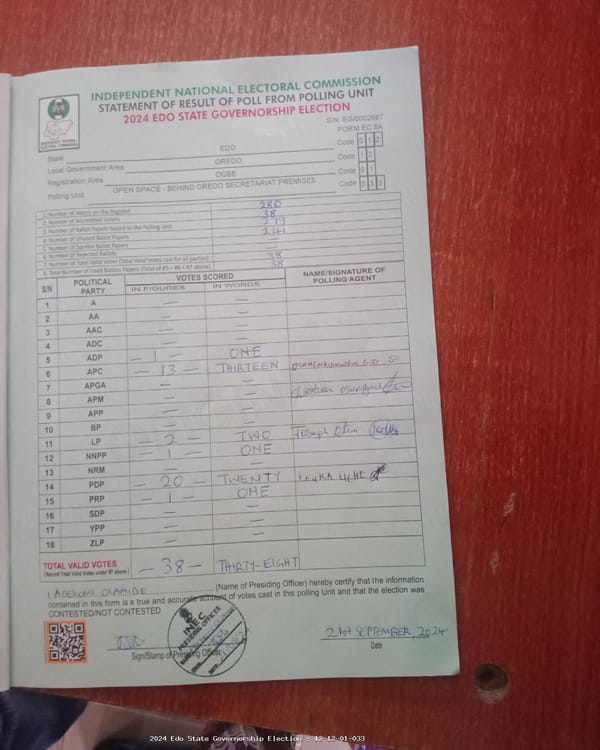 INDEPENDENT NATIONAL ELECTORAL COMMISSION
STATEMENT OF RESULT OF POLL FROM POLLING UNIT
2024 EDO STATE GOVERNORSHIP ELECTION
S/N: EG/0002687
FORM EC 8A
State EDO Code 0 1 2
Local Government Area OREDO Code 1 2
Registration Area OGBE Code 0 1
Polling Unit OPEN SPACE - BEHIND OREDO SECRETARIAT PREMISES Code 0 3 3
1. Number of Voters on the Register 280
2. Number of Accredited Voters 38
3. Number of Ballot Papers Issued to the Polling Unit 279
4. Number of Unused Ballot Papers 241
5. Number of Spoiled Ballot Papers —
6. Number of Rejected Ballots —
7. Number of Total Valid Votes (Total Valid Votes cast for all parties) 38
8. Total Number of Used Ballots Papers (Total of #5 + #6 + #7 above) 38
S/N POLITICAL PARTY VOTES SCORED NAME/SIGNATURE OF POLLING AGENT
IN FIGURES IN WORDS
1 A — —
2 AA — —
3 AAC — —
4 ADC — —
5 ADP — 1 — ONE
6 APC — 13 — THIRTEEN
7 APGA — —
8 APM — —
9 APP — —
10 BP — —
11 LP — 2 — TWO Joseph
12 NNPP — 1 — ONE
13 NRM — —
14 PDP — 20 — TWENTY
15 PRP — 1 — ONE
16 SDP — —
17 YPP — —
18 ZLP — —
TOTAL VALID VOTES — 38 — THIRTY-EIGHT
(Record Total Valid Votes under #7 above)
I, ADEKOMI OLAMIDE (Name of Presiding Officer) hereby certify that the information
contained in this form is a true and accurate account of votes cast in this polling Unit and that the election was
CONTESTED/NOT CONTESTED
INEC
PRESIDING OFFICER
21st SEPTEMBER, 2024
Sign/Stamp of Presiding Officer Date
2024 Edo State Governorship Election : 12-12-01-033